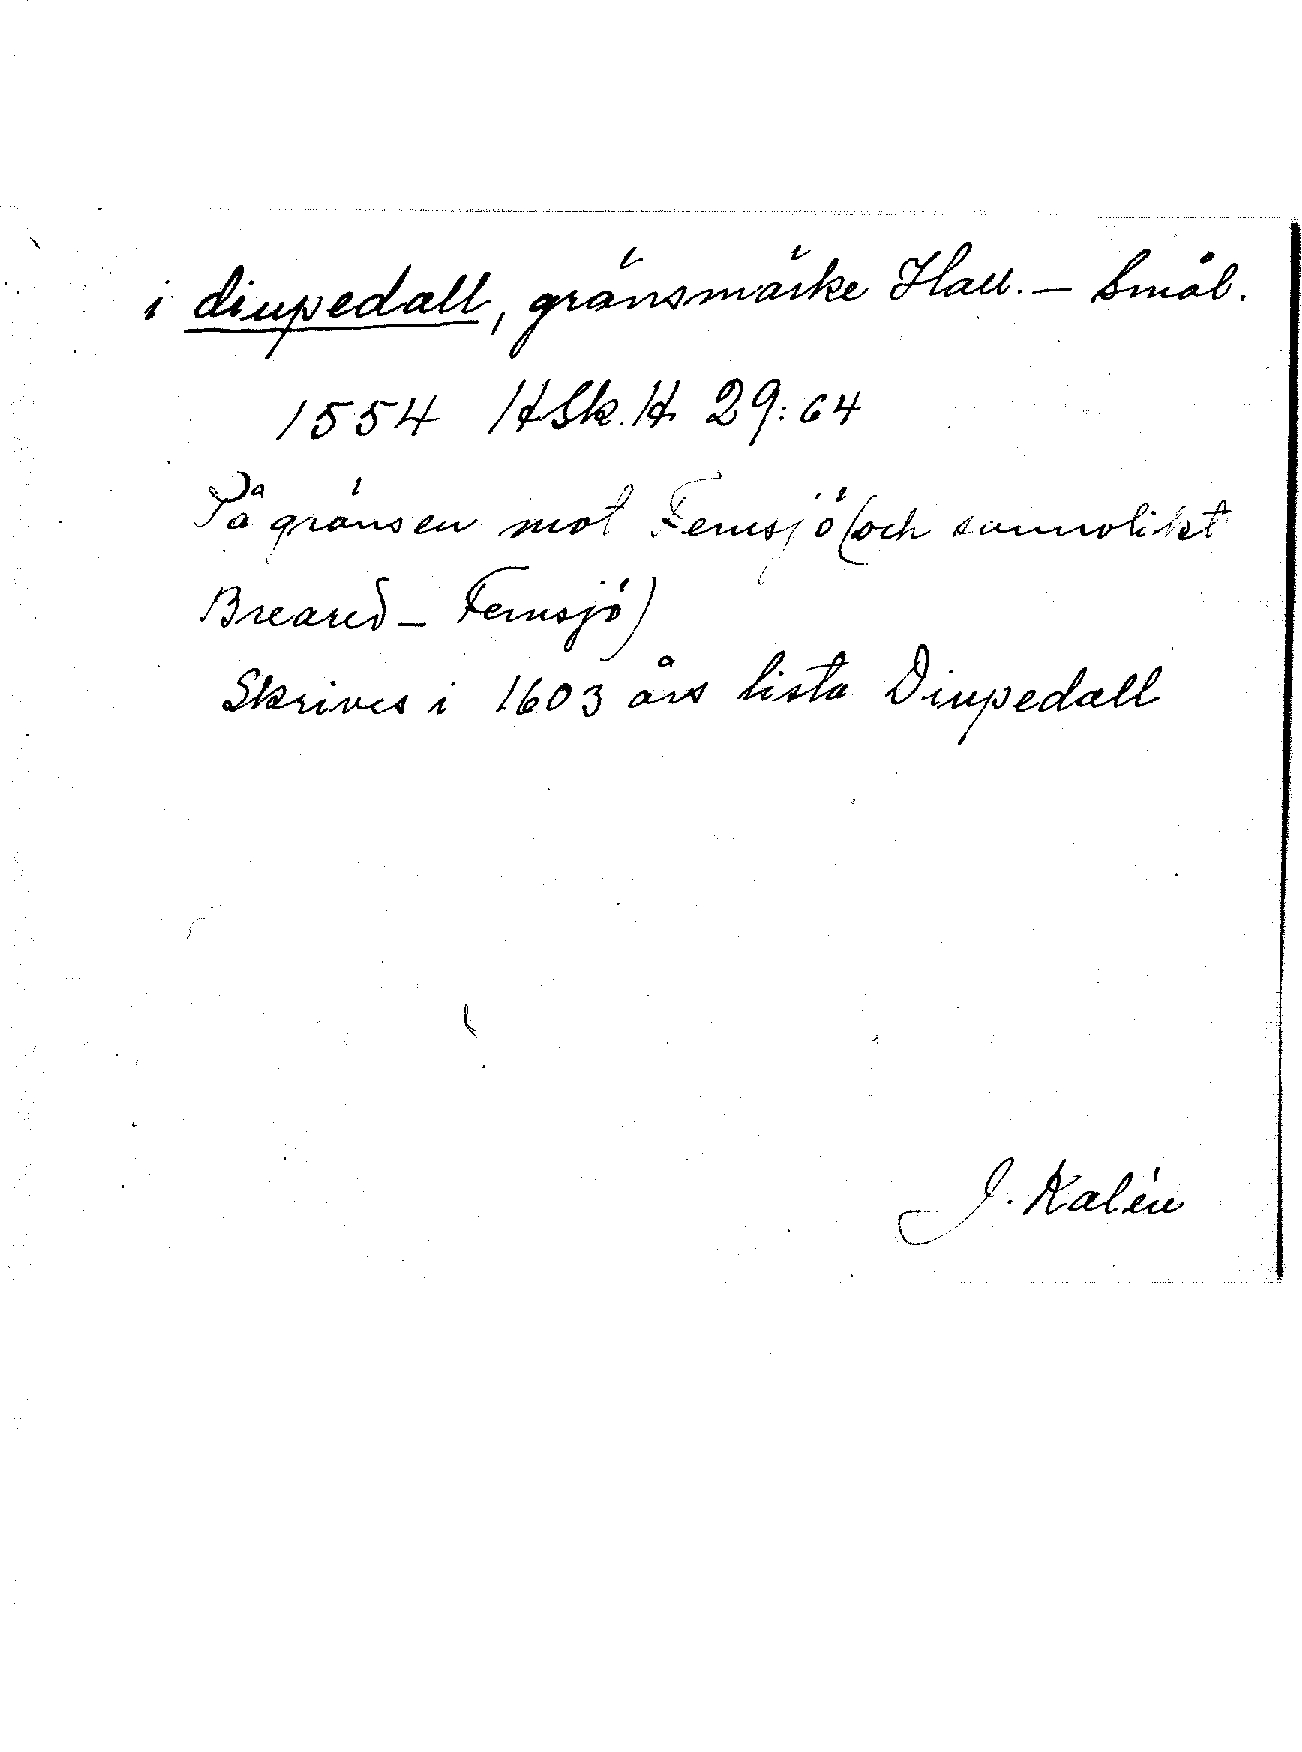 i diupedall, gränsmärke Hall. – Smål.
1554 HSk.H. 29:64
På gränsen mot Femsjö (och sannolikt
Breared – Femsjö)
Skrives i 1603 års lista Diupedall
J. Kalén